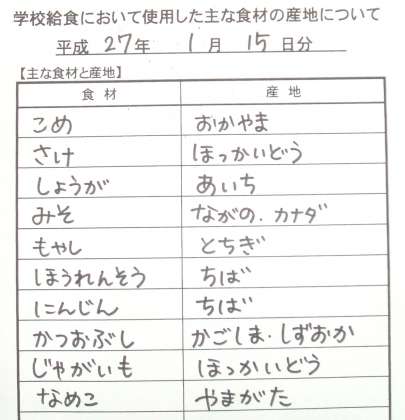 学校給食において使用した主な食材の産地について
平成 27年 1月 15日分
【主な食材と産地】
食材 産地
こめ おかやま
さけ ほっかいどう
しょうが あいち
みそ ながの.カナダ
もやし とちぎ
ほうれんそう ちば
にんじん ちば
かつおぶし かごしま・しずおか
じゃがいも ほっかいどう
なめこ やまがた